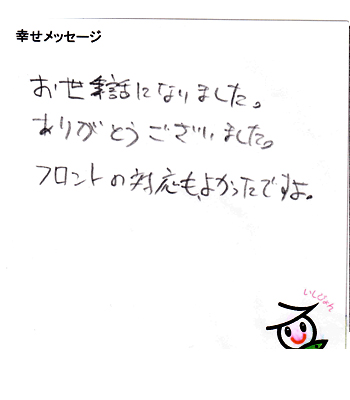 幸せメッセージ
お世話になりました。
ありがとうございました。
フロントの対応も、よかったですよ。
いしぴょん